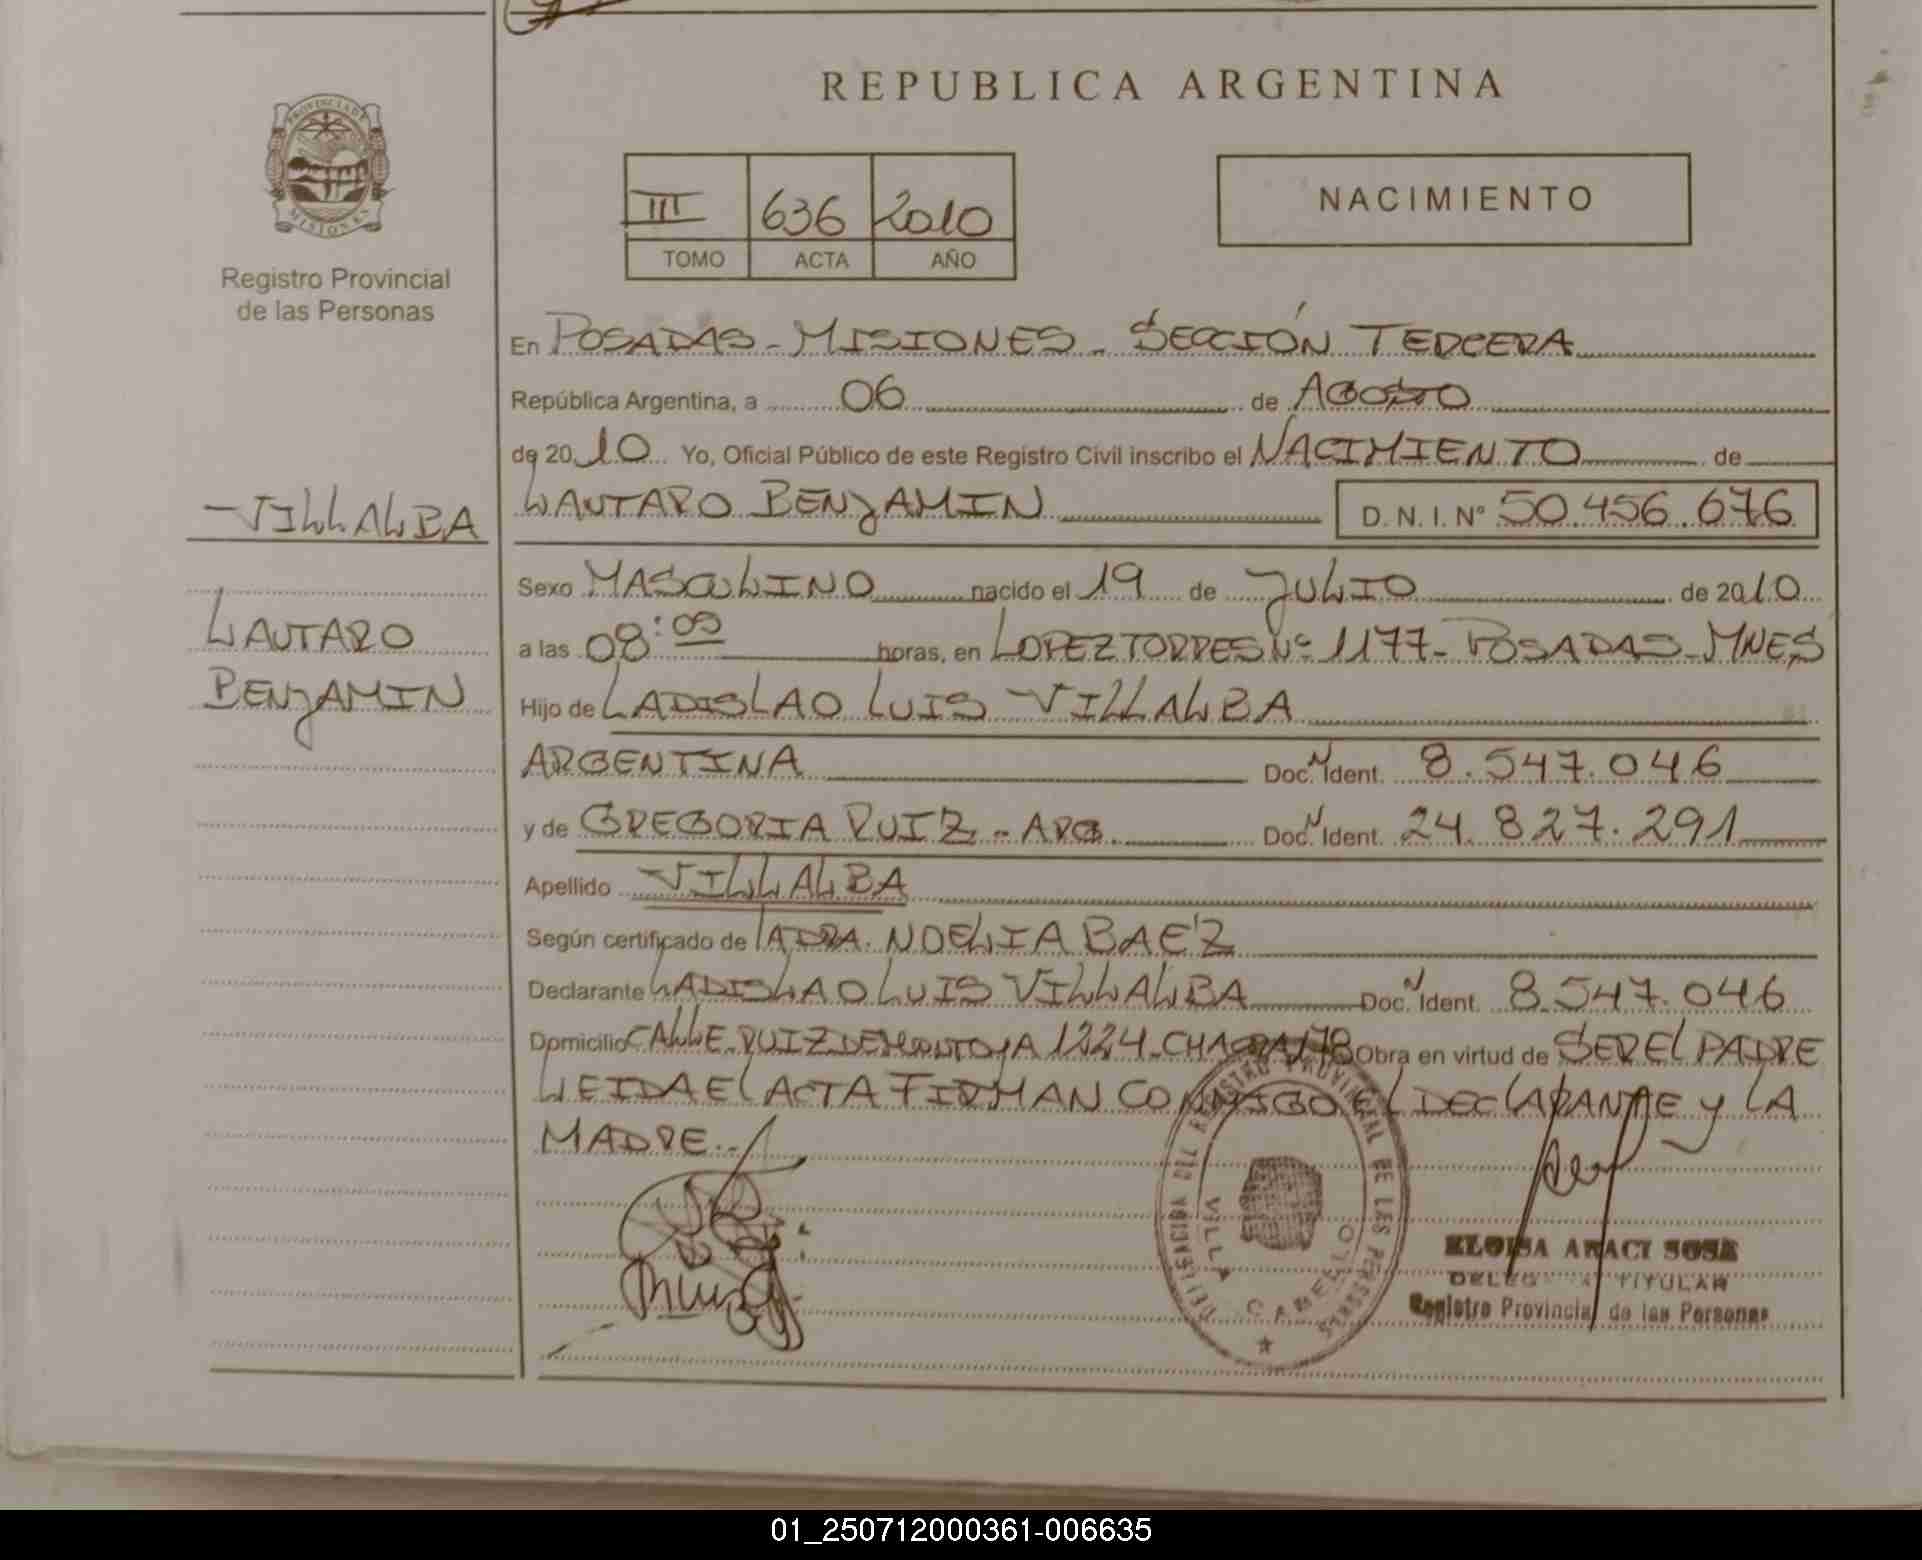 REPUBLICA ARGENTINA
PROVINCIA DE MISIONES
Registro Provincial
de las Personas
III 636 2010
TOMO ACTA AÑO
NACIMIENTO
En POSADAS - MISIONES - SECCIÓN TERCERA
República Argentina, a 06 de AGOSTO
de 2010 Yo, Oficial Público de este Registro Civil inscribo el NACIMIENTO de
VILLALBA
LAUTARO BENJAMIN D.N.I. Nº 50.456.676
Sexo MASCULINO nacido el 19 de JULIO de 2010
LAUTARO
BENJAMIN
a las 08:09 horas, en LOPEZ TORRES Nº 1177 - POSADAS - MNES
Hijo de LADISLAO LUIS VILLALBA
ARGENTINA Doc. N Ident. 8.547.046
y de GREGORIA RUIZ - ARG. Doc. N Ident. 24.827.291
Apellido VILLALBA
Según certificado de LA DRA. NOELIA BAEZ
Declarante LADISLAO LUIS VILLALBA Doc. N Ident. 8.547.046
Domicilio CALLE RUIZ DE MONTOYA 1224 - CHACRA 178 Obra en virtud de SER EL PADRE
LEIDA EL ACTA FIRMAN CONMIGO EL DECLARANTE Y LA
MADRE.
DELEGACION DEL REGISTRO PROVINCIAL DE LAS PERSONAS
VILLA CABELLO
ELOISA ARACI SOSA
TITULAR
Registro Provincial de las Personas
01_250712000361-006635